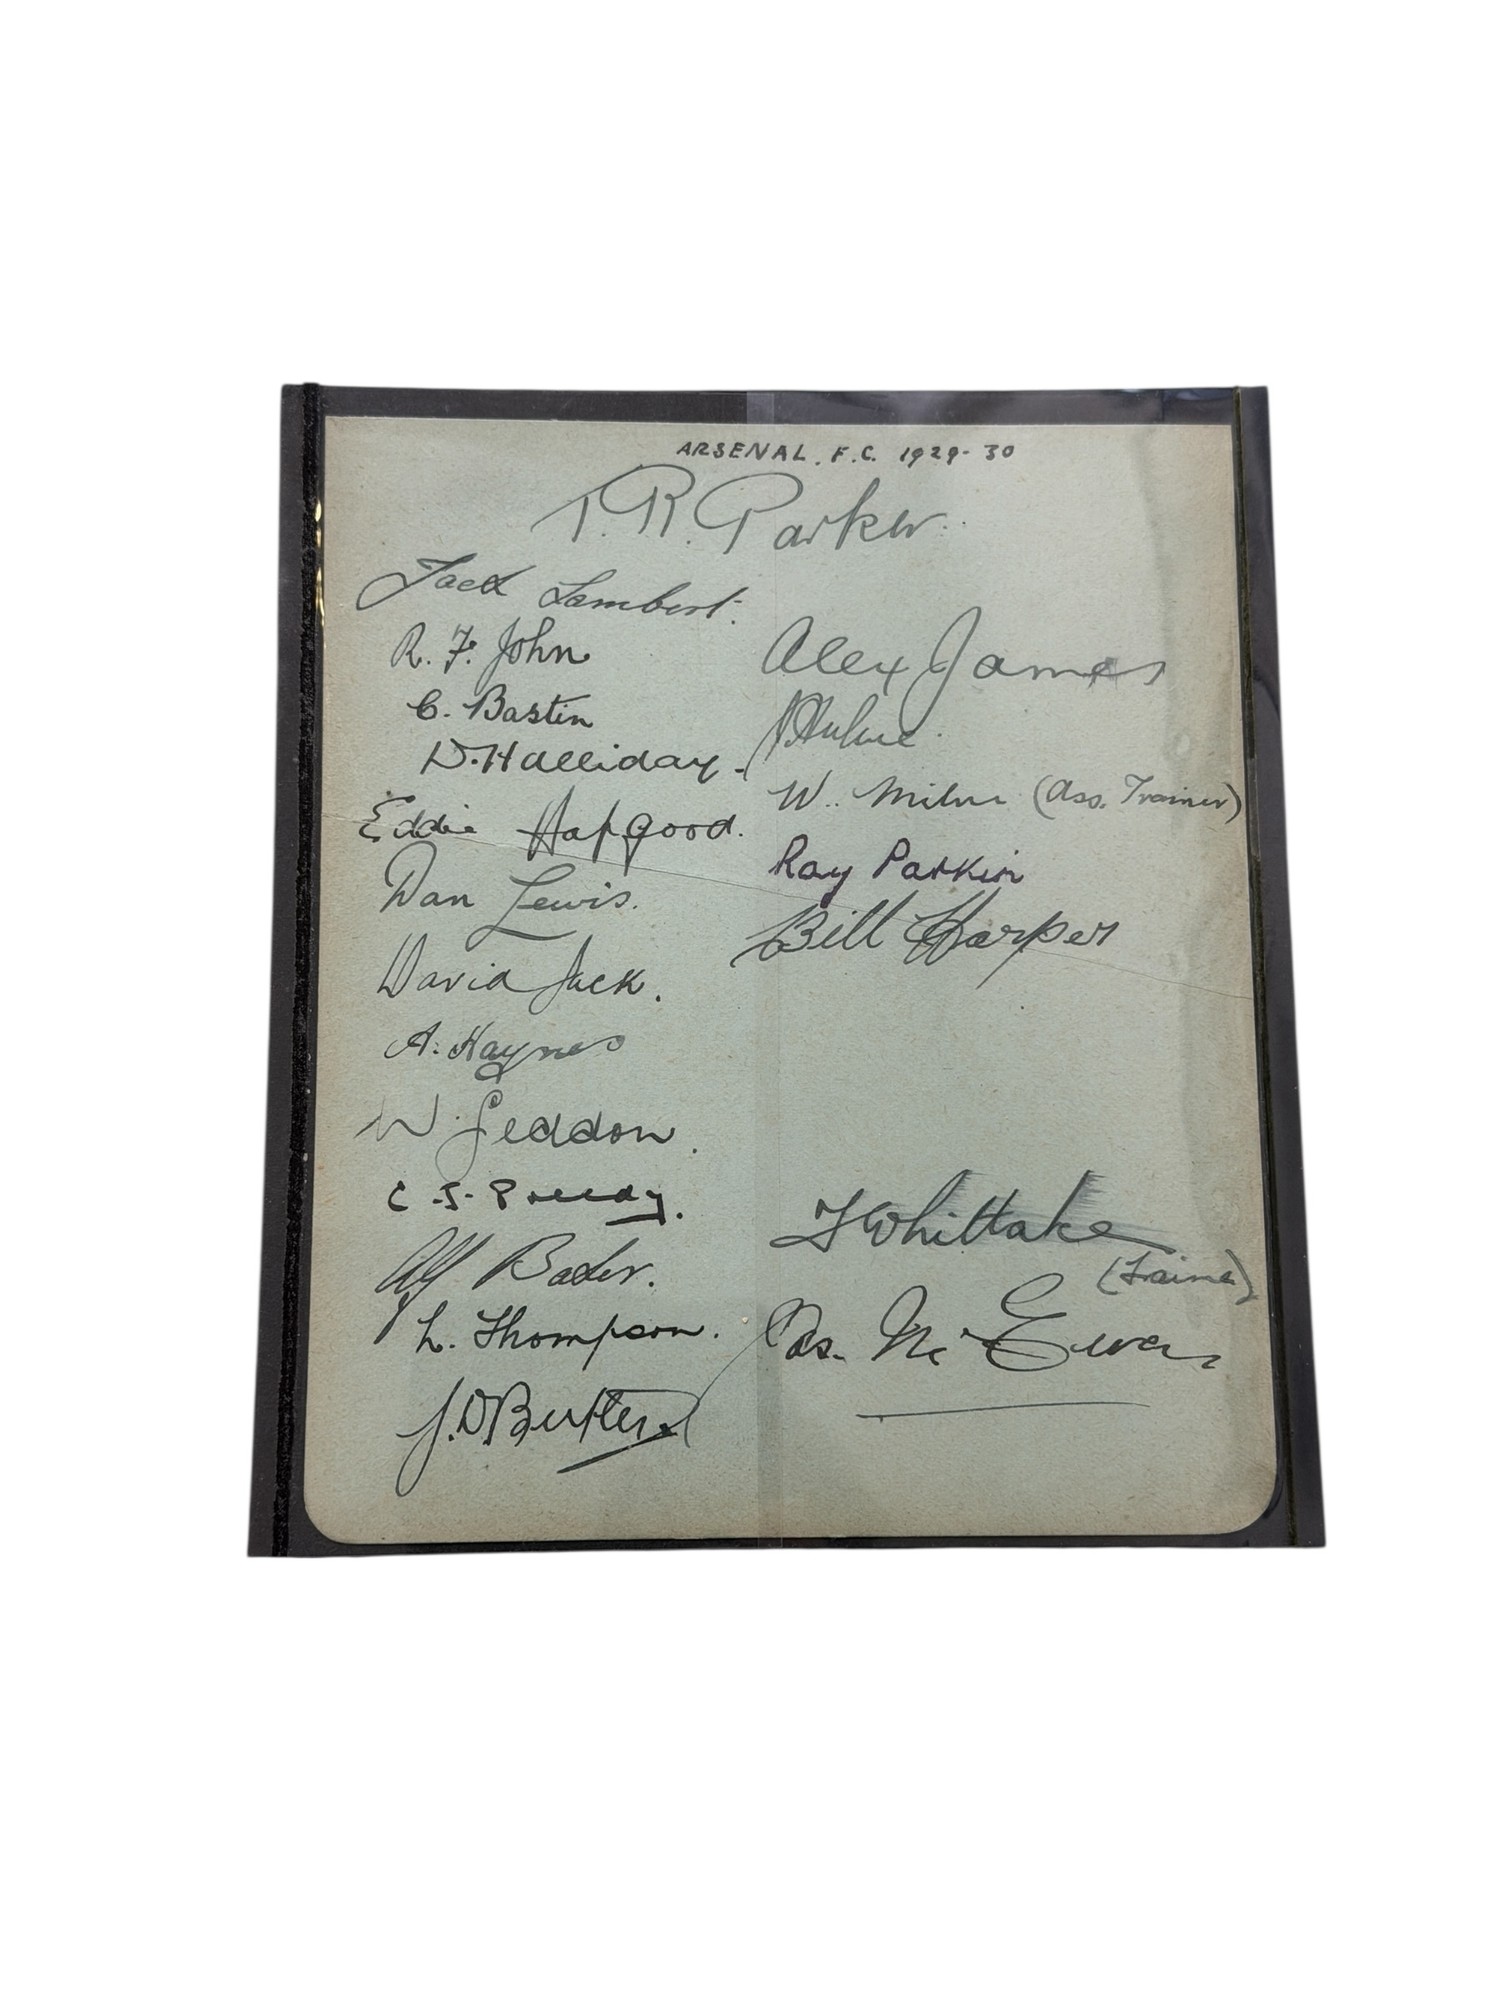 ARSENAL. F.C. 1929-30
T. R. Parker.
Jack Lambert.
R. F. John
C. Bastin
D. Halliday.
Eddie Hapgood.
Dan Lewis.
David Jack.
A. Haynes
W. Seddon.
C. J. Preedy.
Alf Baker.
L. Thompson.
J. D. Butler
Alex James
J Hulme.
W. Milne (Ass. Trainer)
Ray Parkin
Bill Harper
T Whittaker
(Trainer)
Mc Ewen